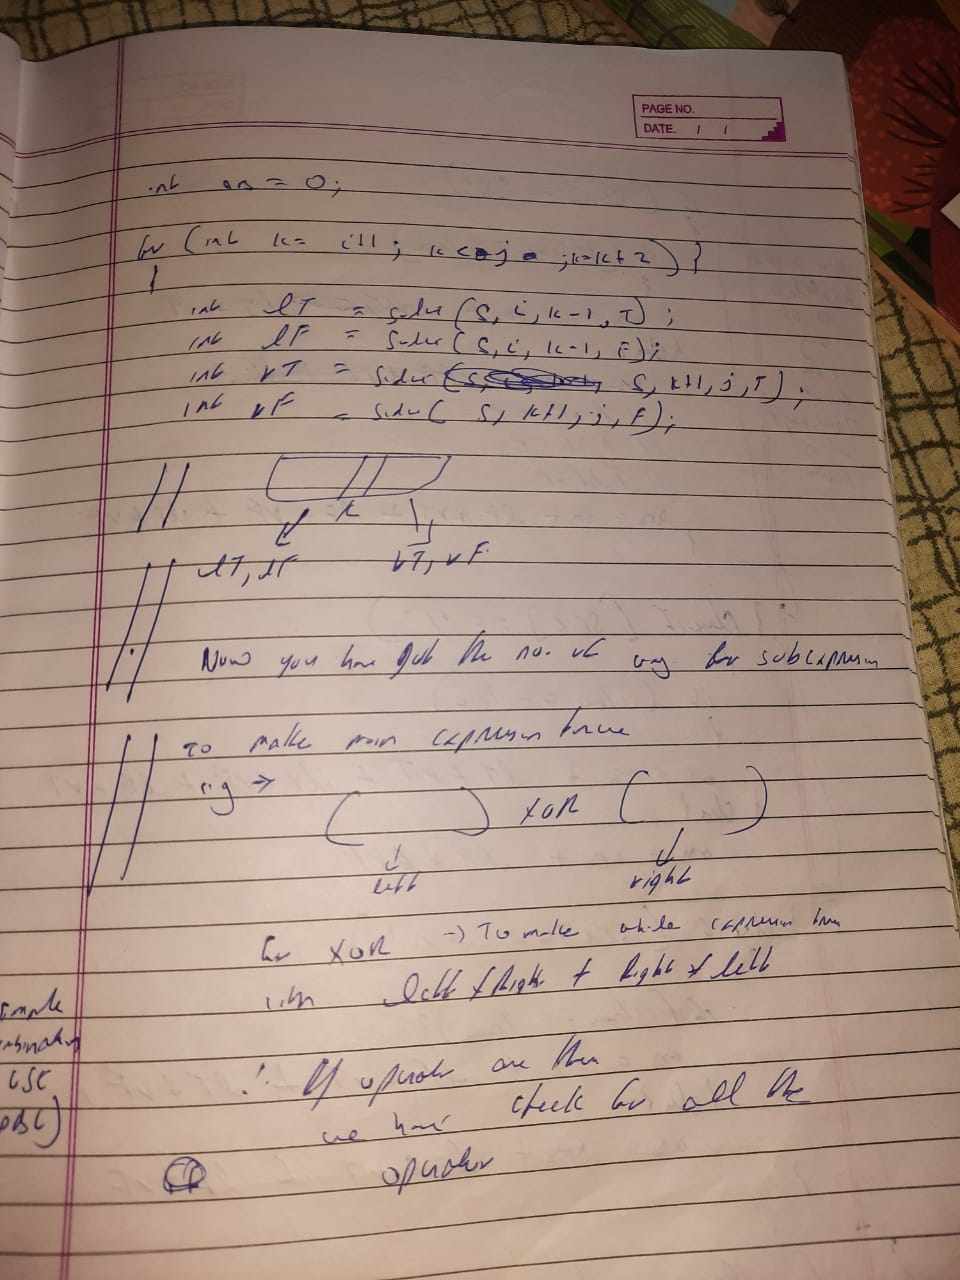 PAGE NO.
DATE. / /
int ans = 0;
for (int k = i+1 ; k < j ; k=k+2) }
{
int lT = solve (S, i, k-1, T) ;
int lF = solve (S, i, k-1, F);
int rT = solve ( S, k+1, j, T) ;
int rF = solve ( S, k+1, j, F);
k
lT, lF rT, rF
Now you have got the no. of way for subexpression
To make main expression true
eg →
( ) XOR ( )
left right
for XOR → To make whole expression true
left * Right + Right * left
∴ If operator are then
we have check for all the
operator